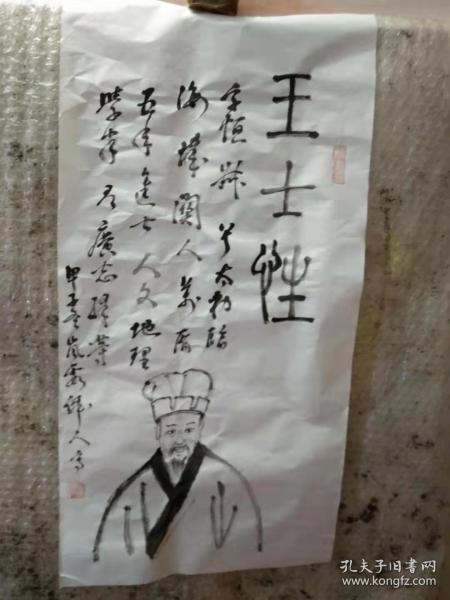 王士性
字恒叔 号太初临
海城关人万历
五年进士人文地理
学者 有广志绎等
甲午冬岚
人写
孔夫子旧书网
www.kongfz.com